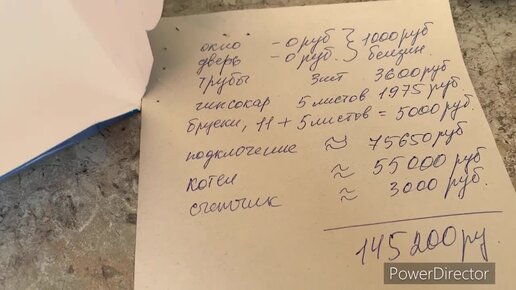 окно - 0 руб } 1000 руб
дверь - 0 руб. } бензин.
трубы 3шт 3600 руб
гипсокар 5 листов 1975 руб
бруски, 11 + 5 листов = 5000 руб.
подключение ≈ 75650 руб
котел ≈ 55000 руб
счетчик ≈ 3000 руб.
145200 ру.
PowerDirector